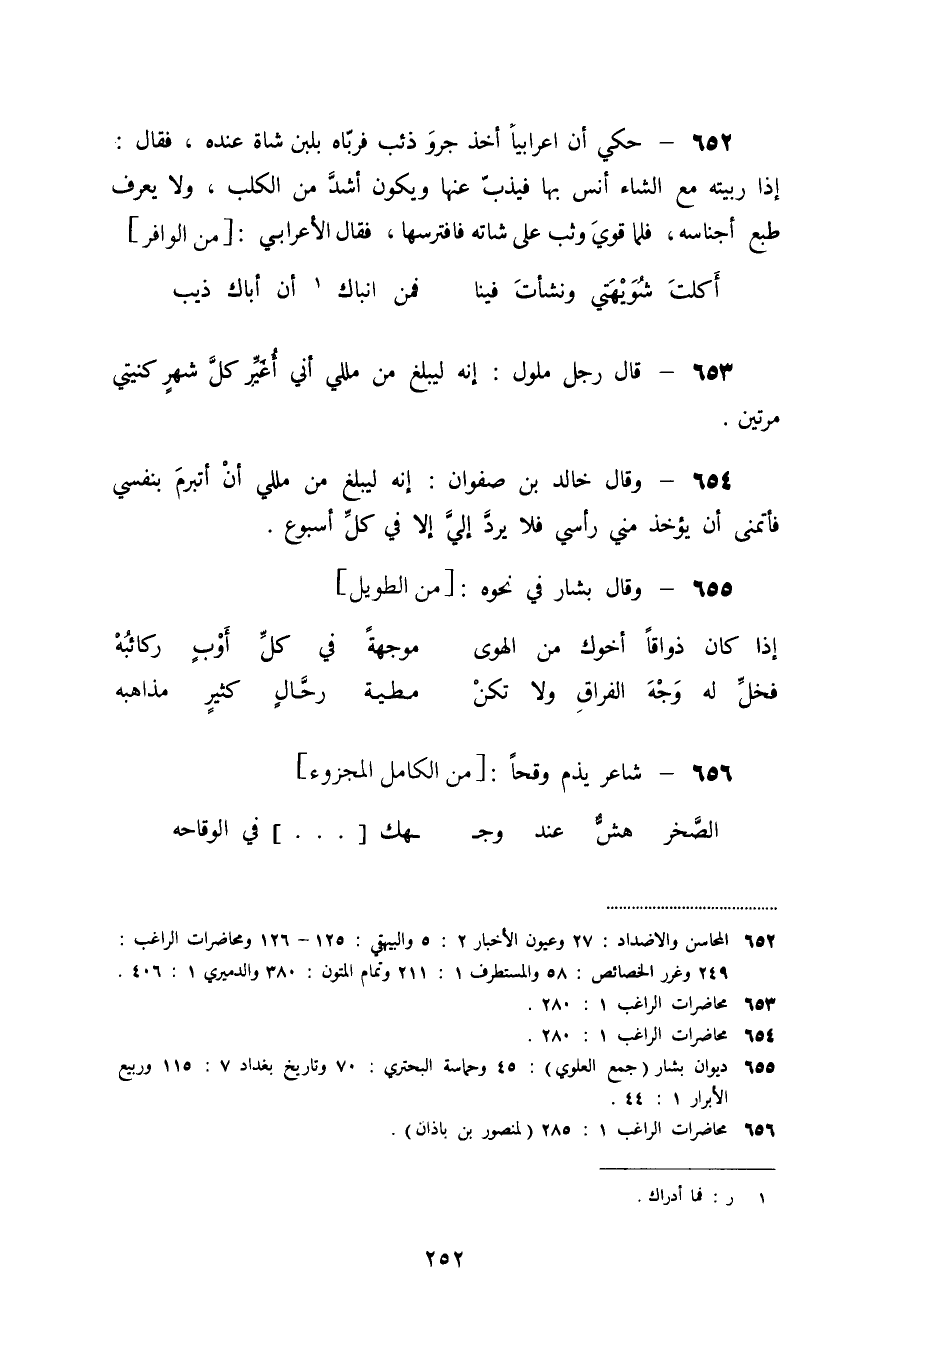 ٦٥٢ – حكي أن اعرابياً أخذ جروَ ذئب فربّاه بلبن شاة عنده ، فقال :
إذا ربيته مع الشاء أنس بها فيذبّ عنها ويكون أشدَّ من الكلب ، ولا يعرف
طبع أجناسه، فلما قويَ وثب على شاته فافترسها ، فقال الأعرابي :[من الوافر]
أكلتَ شُوَيْهَتي ونشأتَ فينا فمن انباك ١ أن أباك ذيب
٦٥٣ – قال رجل ملول : إنه ليبلغ من مللي أني أُغَيِّر كلَّ شهرٍ كنيتي
مرتين .
٦٥٤ – وقال خالد بن صفوان : إنه ليبلغ من مللي أنْ أتبرمَ بنفسي
فأتمنى أن يؤخذ مني رأسي فلا يردَّ إليَّ إلا في كلِّ أسبوع .
٦٥٥ – وقال بشار في نحوه :[من الطويل]
إذا كان ذواقاً أخوك من الهوى موجهةً في كلِّ أَوْبٍ ركائبُهْ
فخلِّ له وَجْهَ الفراقِ ولا تكنْ مطية رحَّالٍ كثيرٍ مذاهبه
٦٥٦ – شاعر يذم وقحاً :[من الكامل المجزوء]
الصَّخر هشٌّ عند وجـ ـهك [ . . . ] في الوقاحه
٦٥٢ المحاسن والاضداد : ٢٧ وعيون الأخبار ٢ : ٥ والبيهقي : ١٢٥ – ١٢٦ ومحاضرات الراغب :
٢٤٩ وغرر الخصائص : ٥٨ والمستطرف ١ : ٢١١ وتمام المتون : ٣٨٠ والدميري ١ : ٤٠٦ .
٦٥٣ محاضرات الراغب ١ : ٢٨٠ .
٦٥٤ محاضرات الراغب ١ : ٢٨٠ .
٦٥٥ ديوان بشار (جمع العلوي) : ٤٥ وحماسة البحتري : ٧٠ وتاريخ بغداد ٧ : ١١٥ وربيع
الأبرار ١ : ٤٤ .
٦٥٦ محاضرات الراغب ١ : ٢٨٥ (لمنصور بن باذان) .
١ ر : فما أدراك .
٢٥٢